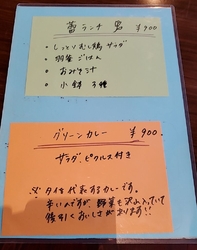 ランチ ¥900
・しっとりむし鶏サラダ
・羽釜ごはん
・おみそ汁
・小鉢 3種
グリーンカレー ¥900
サラダ、ピクルス付き
※タイを代表するカレーです。
辛いんですが、野菜も沢山入っていて
後引くおいしさがあります!!